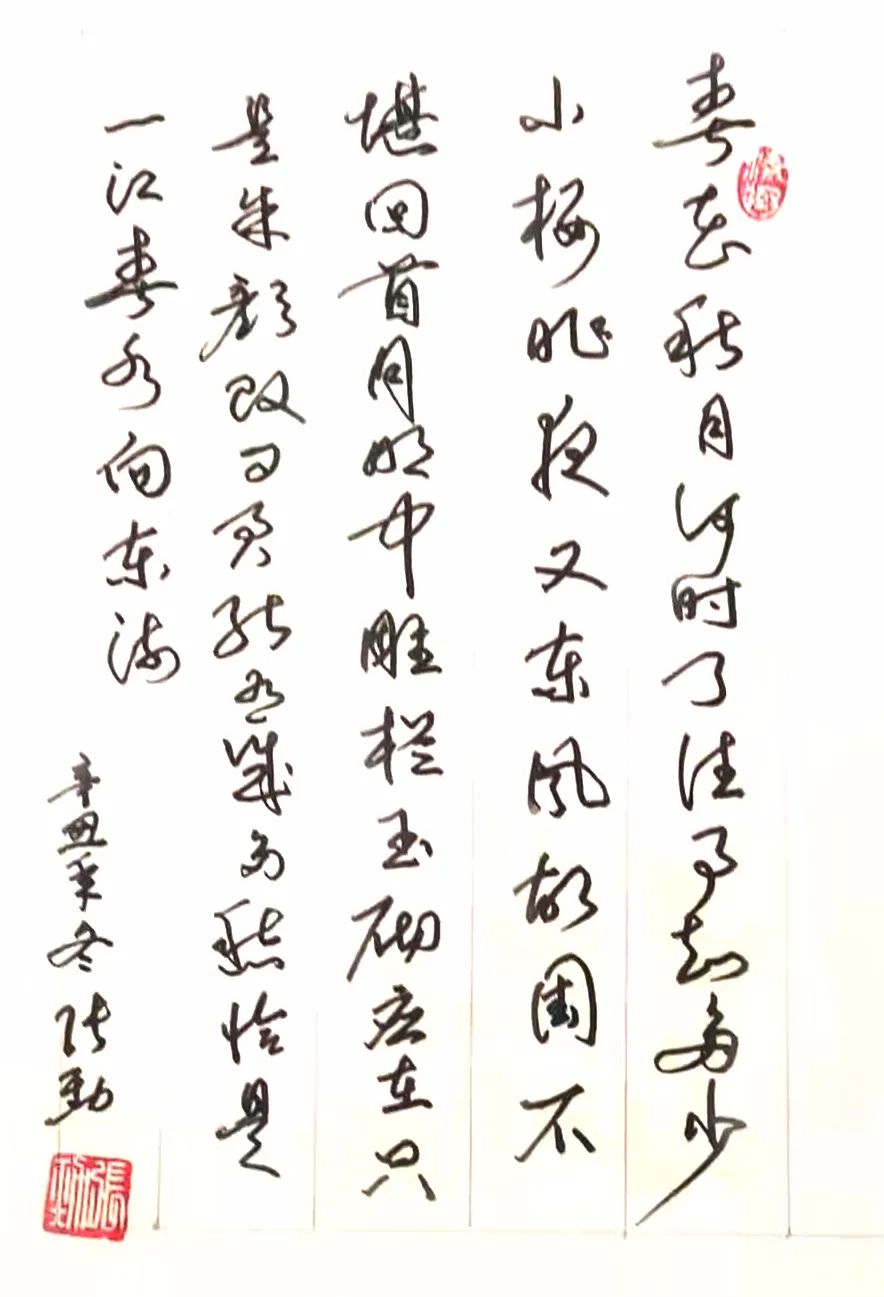 春花秋月何时了往事知多少
小楼昨夜又东风故国不
堪回首月明中雕栏玉砌应在只
是朱颜改问君能有几多愁恰是
一江春水向东流
辛丑秊冬 张勁